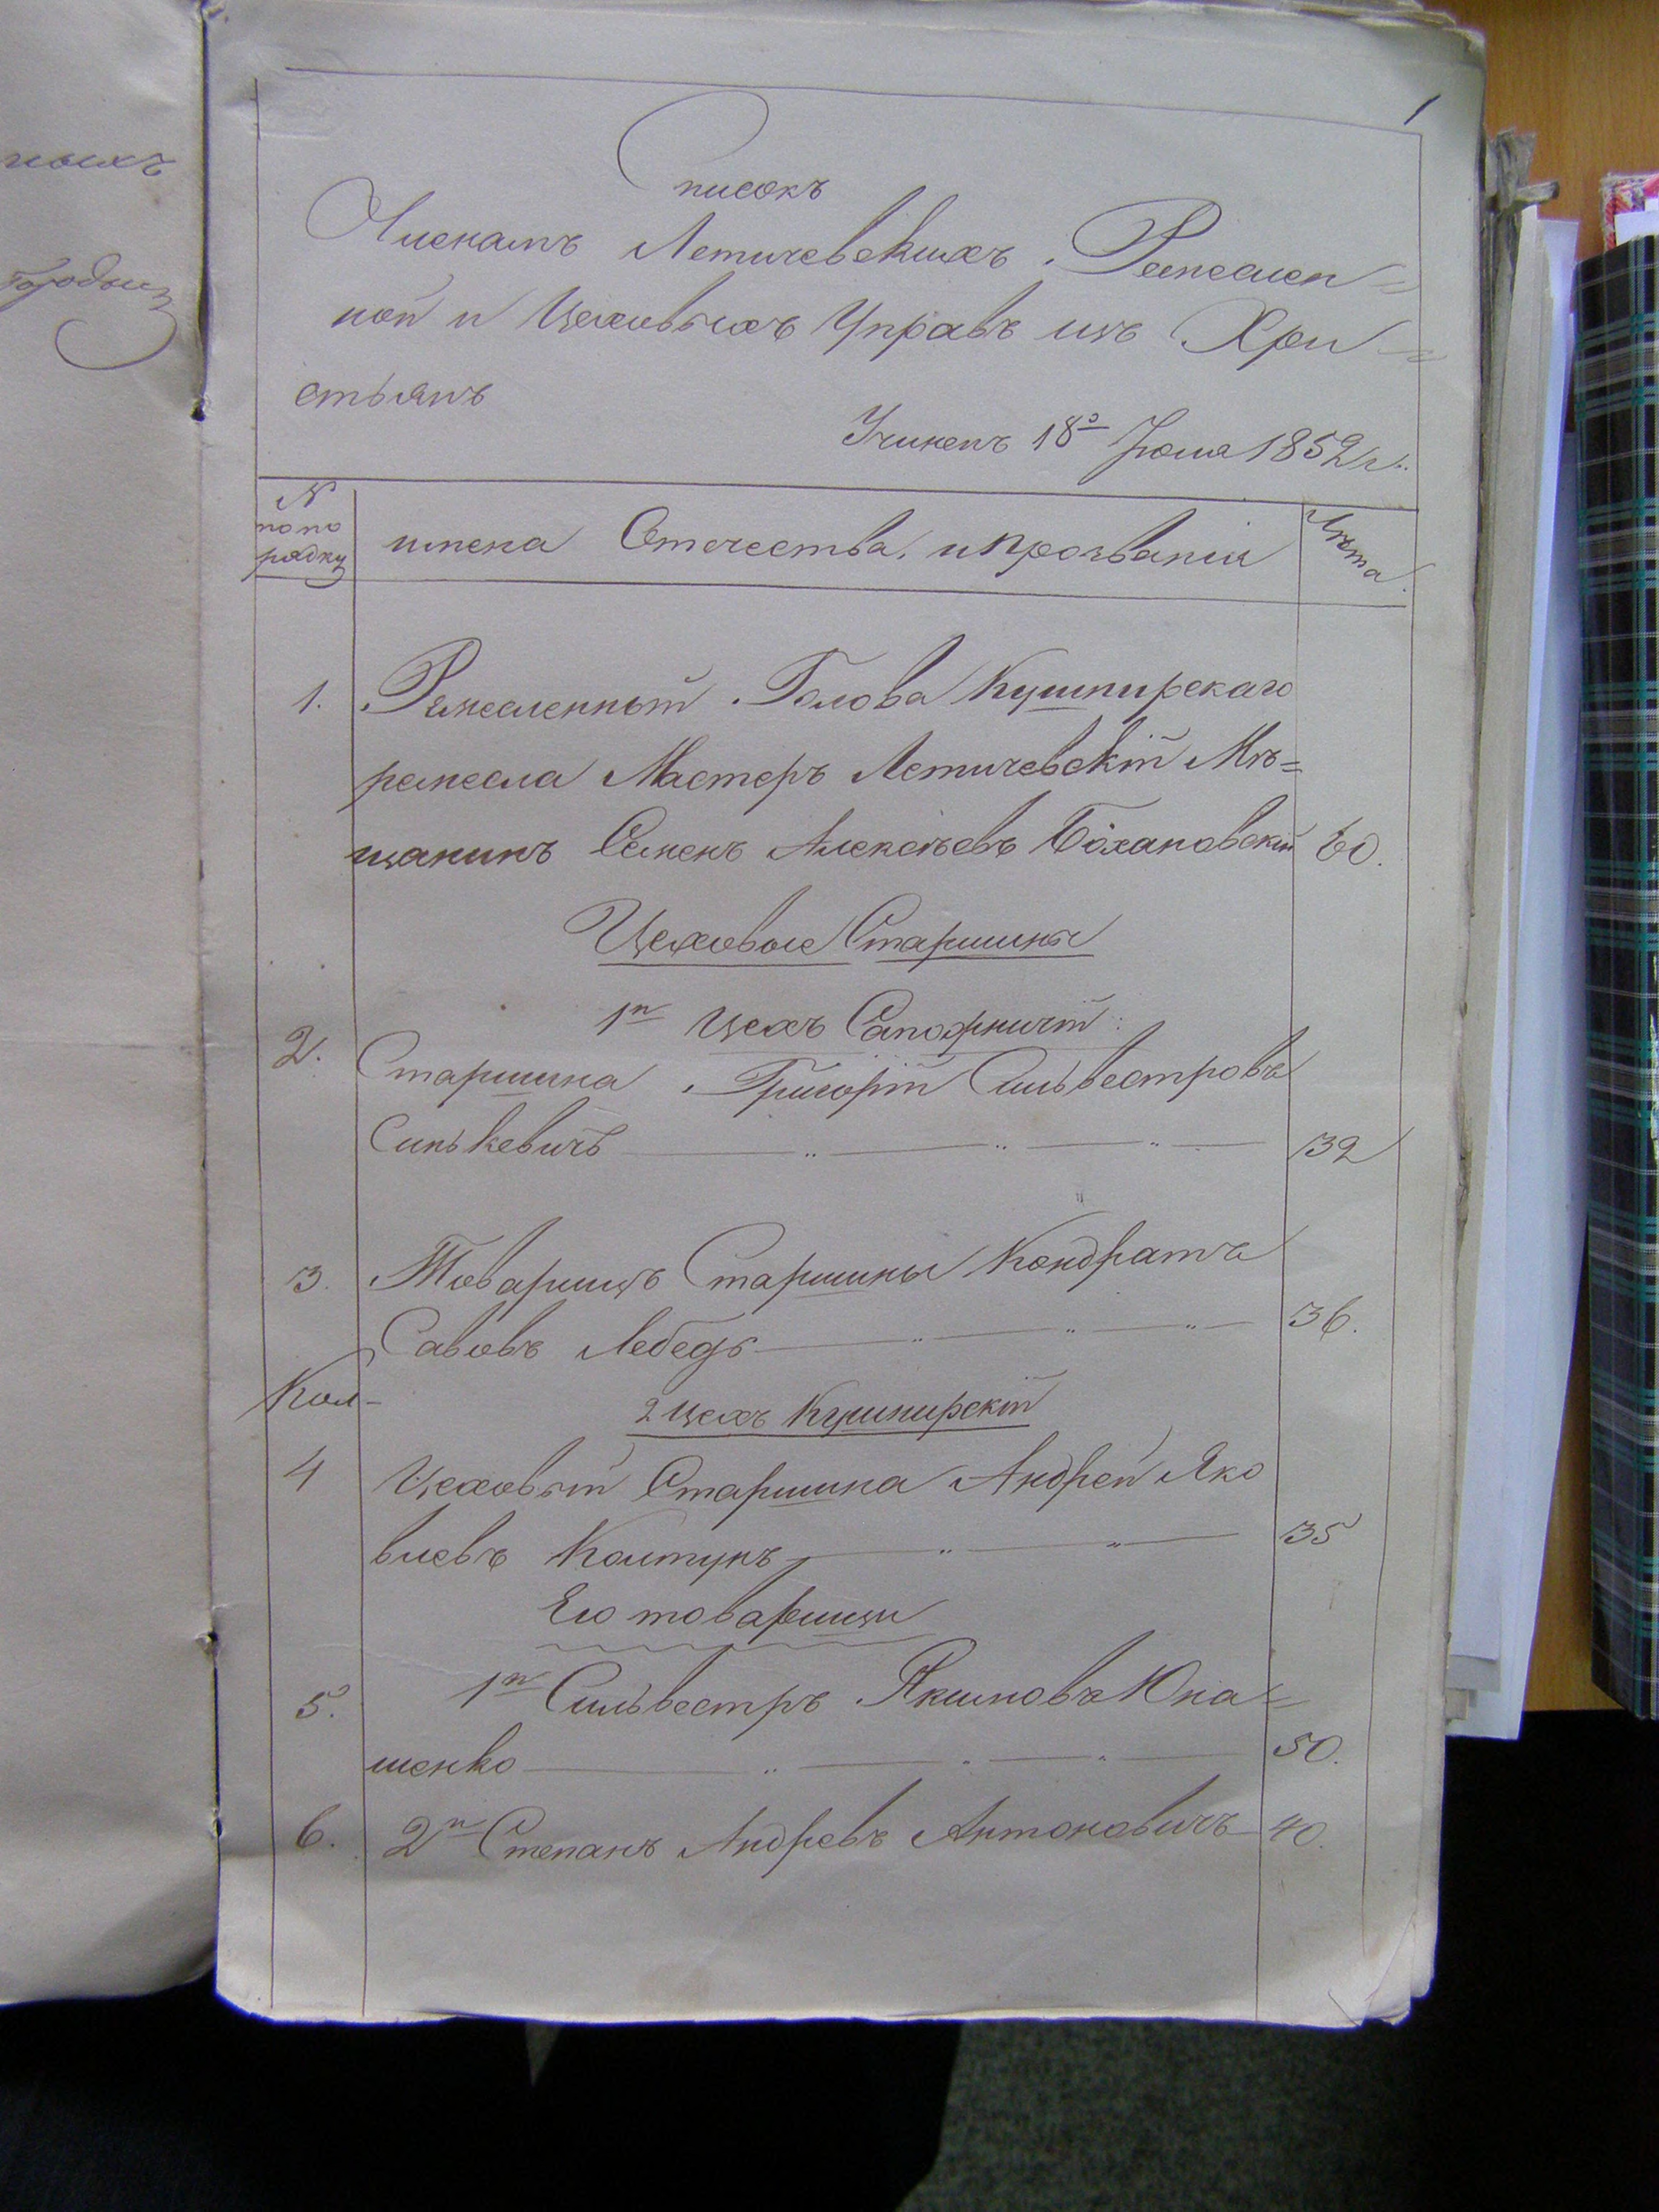 ныхъ
1
Списокъ
Членамъ Летичевскихъ Ремеслен=
ной и Цеховыхъ Управъ изъ Хри=
стьянъ
Учиненъ 18го Июля 1852 г.
№ по по рядку
имена Отечества, и прозвания
Лѣта
1. Ремесленный Голова Кушнирскаго
ремесла Мастеръ Летичевскій Мѣ=
щанинъ Семенъ Алексѣевъ Бохановскій 60.
Цеховые Старшины
1й Цехъ Сапожничій:
2. Старшина Григорій Сильвестровъ
Синькевичъ 32
3. Товарищъ Старшины Кондратъ
Савовъ Лебедь 36.
2 Цехъ Кушнирскій
4 Цеховый Старшина Андрей Яко
влевъ Колтунъ 35
Его товарищи
5. 1й Сильвестръ Якимовъ Юка=
шенко 50.
6. 2й Степанъ Андревъ Антоновичъ 40.